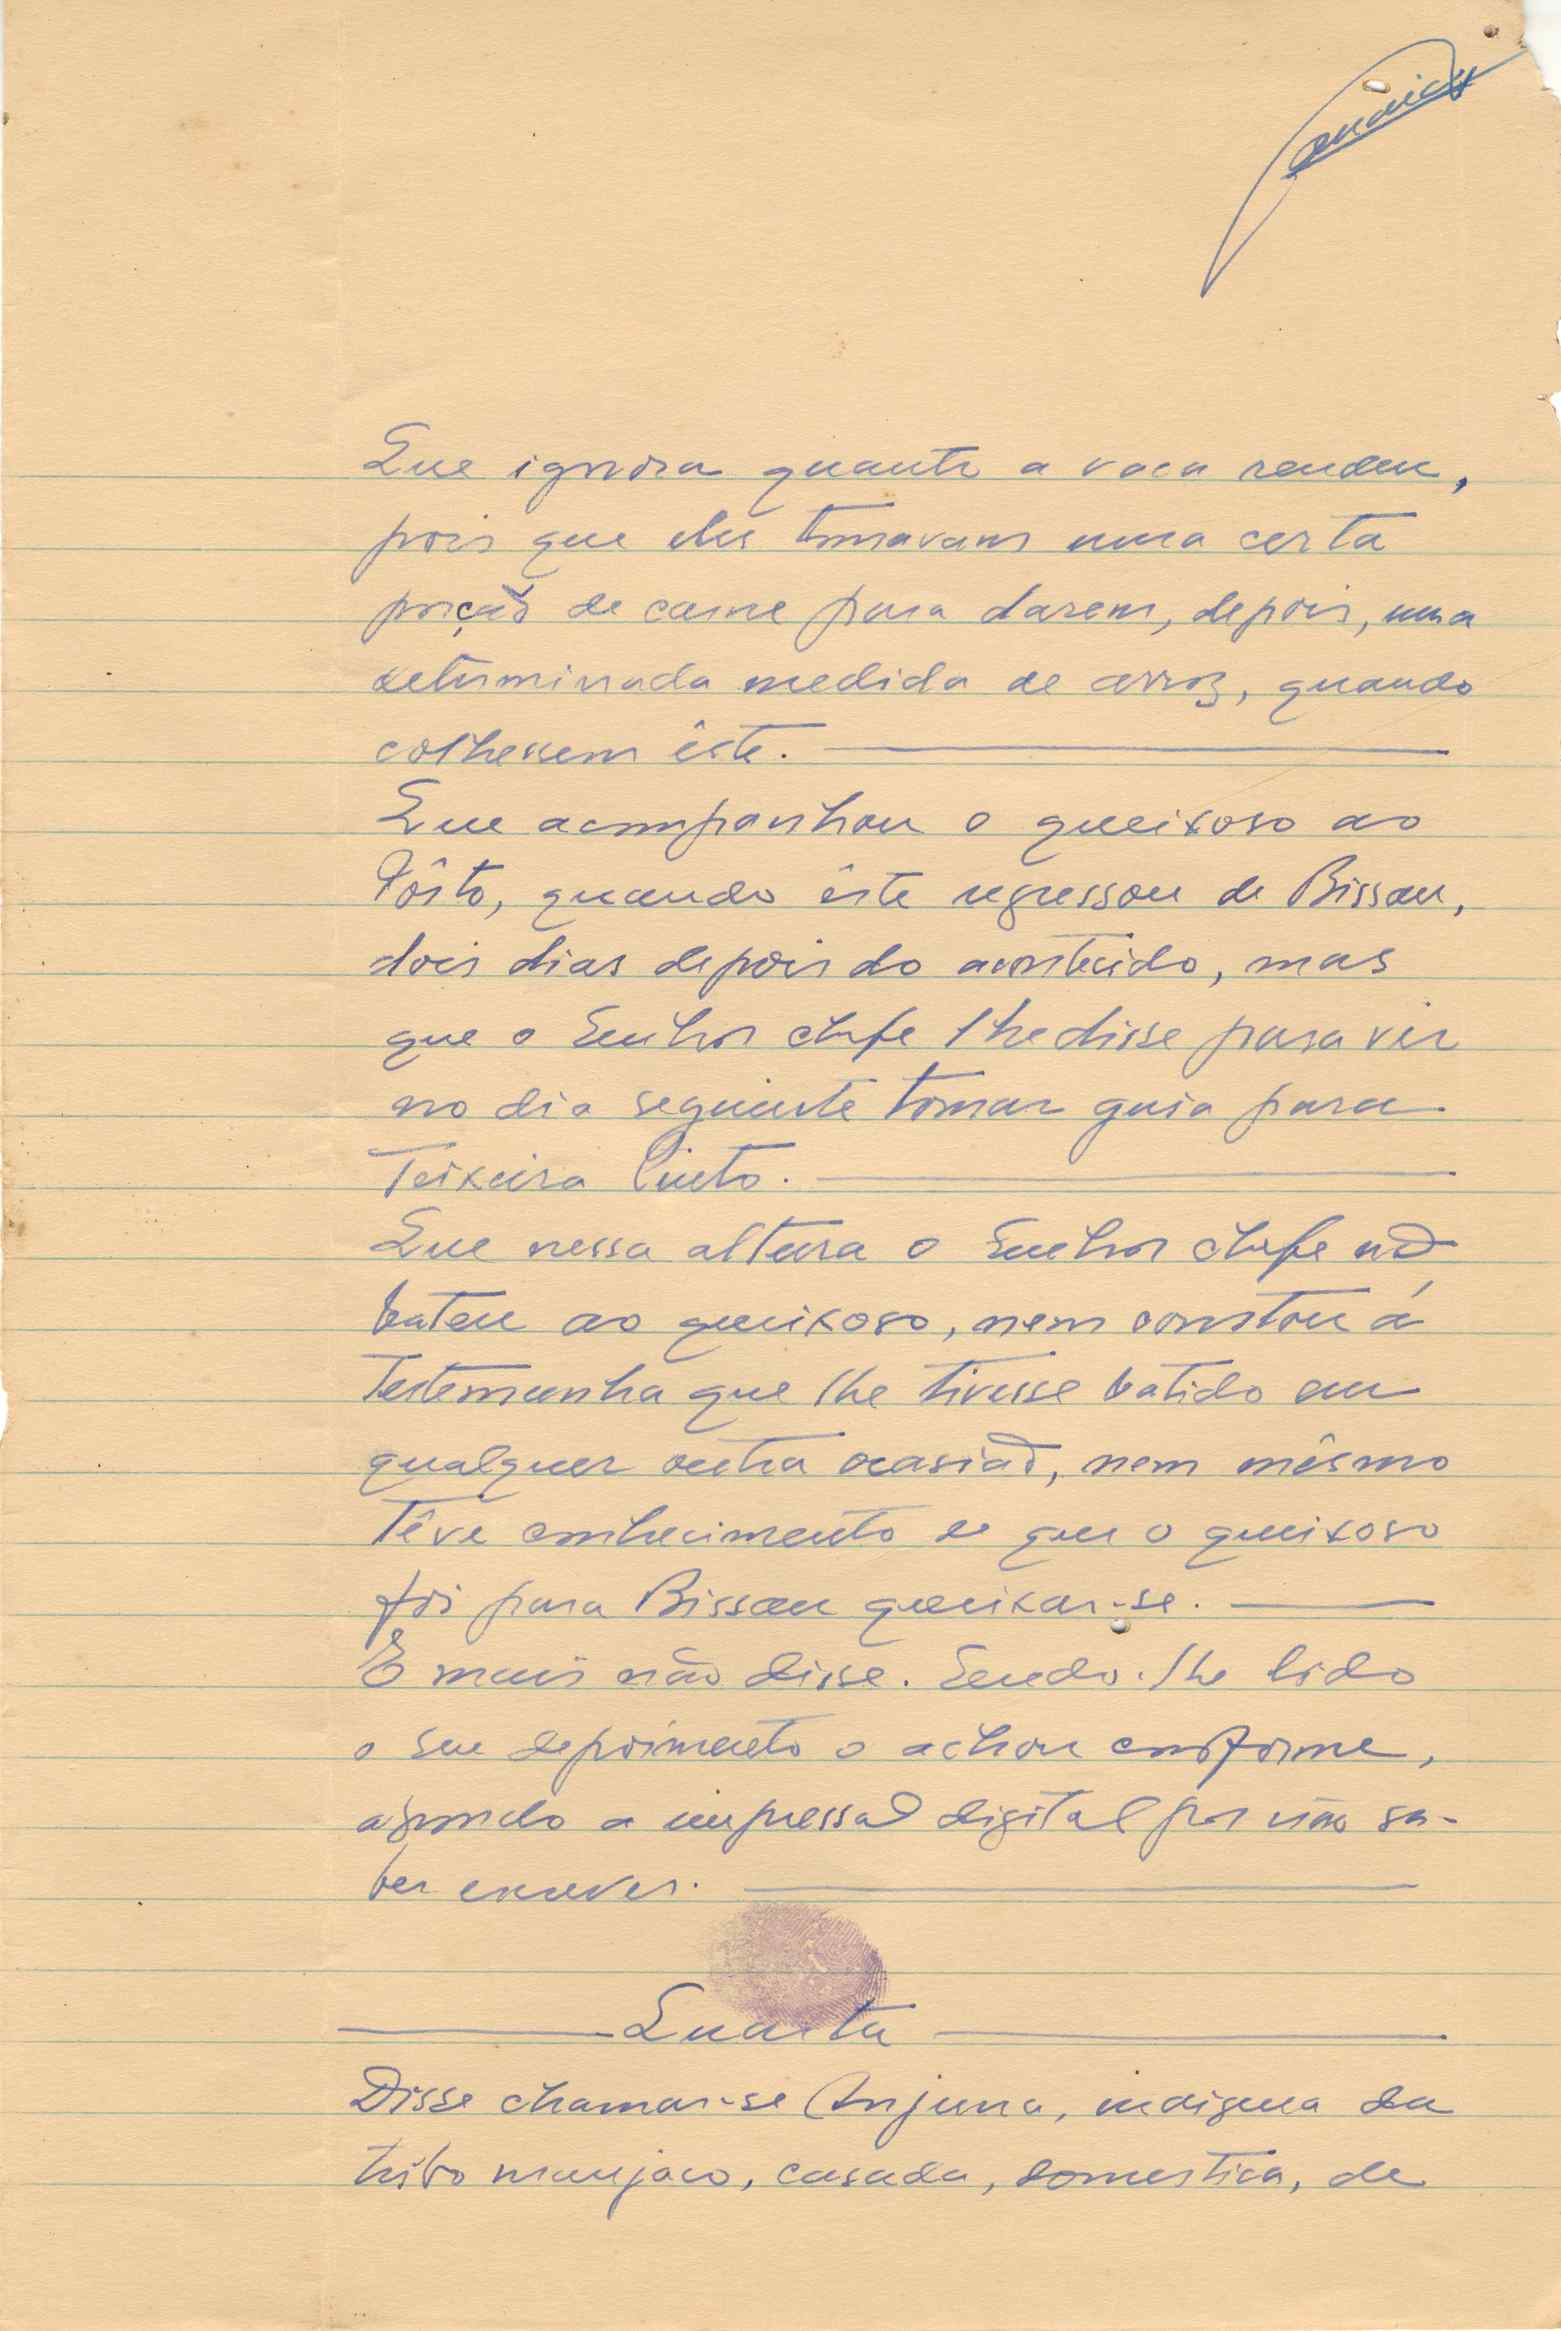 Que ignora quanto a vaca rendeu,
pois que eles tomavam uma certa
porção de carne para darem, depois, uma
determinada medida de arroz, quando
colhessem êste.
Que acompanhou o queixoso ao
Pôsto, quando êste regressou de Bissau,
dois dias depois do acontecido, mas
que o Senhor chefe lhe disse para vir
no dia seguinte tomar guia para
Teixeira Pinto.
Que nessa altura o Senhor chefe não
bateu ao queixoso, nem constou á
testemunha que lhe tivesse batido em
qualquer outra ocasião, nem mêsmo
têve conhecimento de que o queixoso
foi para Bissau queixar-se.
E mais não disse. Sendo-lhe lido
o seu depoimento o achou conforme,
apondo a impressão digital por não sa-
ber escrever.
Quarta
Disse chamar-se Anjuna, indigena da
tribo manjaco, casada, domestica, de